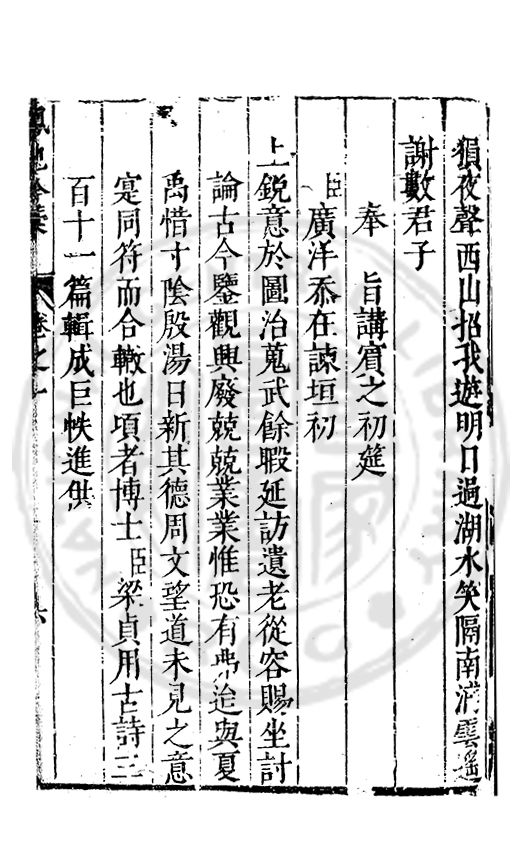 猿夜聲西山招我遊明日過湖水笑隔南湖雲遙
謝數君子
奉　旨講賓之初筵
臣廣洋忝在諫垣初
上銳意於圖治蒐武餘暇延訪遺老從容賜坐討
論古今鑒觀興廢兢兢業業惟恐有弗迨與夏
禹惜寸陰殷湯日新其德周文望道未見之意
寔同符而合轍也頃者博士臣梁貞用古詩三
百十一篇輯成巨帙進供
鳳池吟稿
卷之一
六